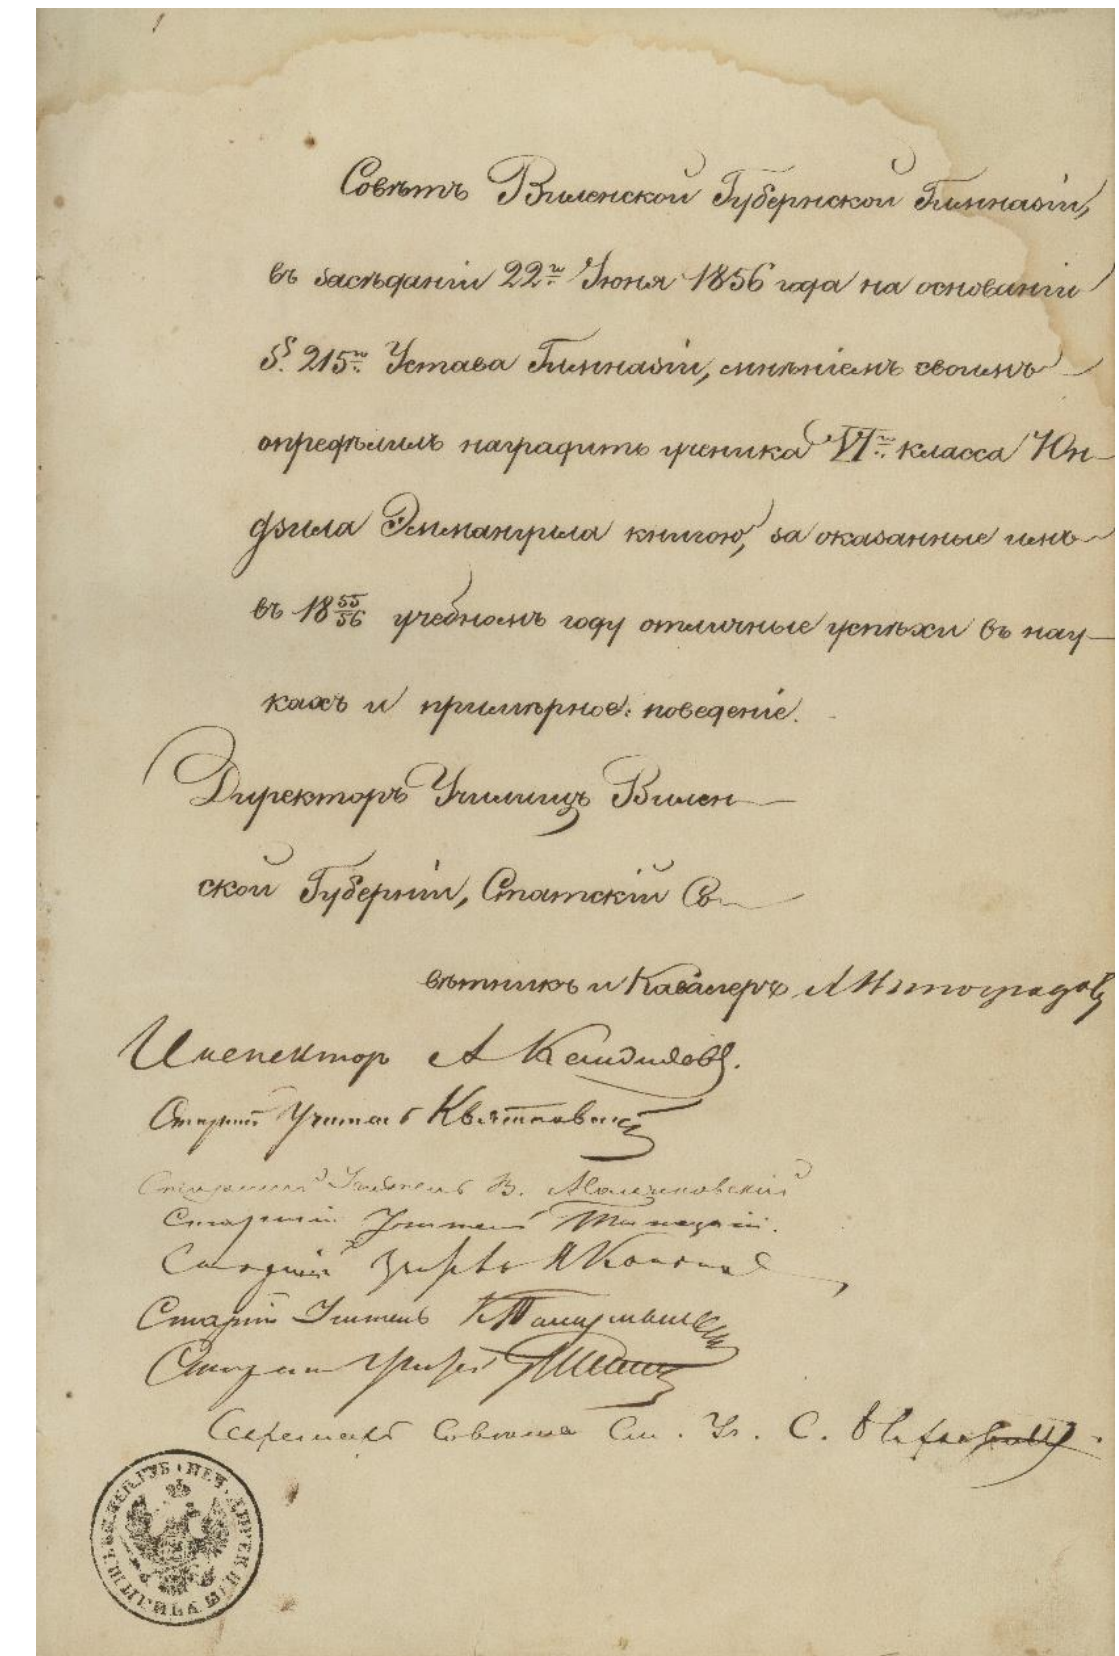 Совѣтъ Виленской Губернской Гимназіи,
въ засѣданіи 22го Іюня 1856 года на основаніи
§. 215го Устава Гимназіи, мнѣніемъ своимъ
опредѣлилъ наградить ученика VIго класса Юн-
дзила Эммануила книгою, за оказанные имъ
въ 18 55/56 учебномъ году отличные успѣхи въ нау-
кахъ и примѣрное поведеніе.
Директоръ Училищъ Вилен-
ской Губерніи, Статскій Со-
вѣтникъ и Кавалеръ А
Инспекторъ А
Старшій Учитель
Старшій Учитель В.
Старшій Учитель
Старшій Учитель
Старшій Учитель
Старшій Учитель
Секретарь Совѣта Ст. Уч. С.